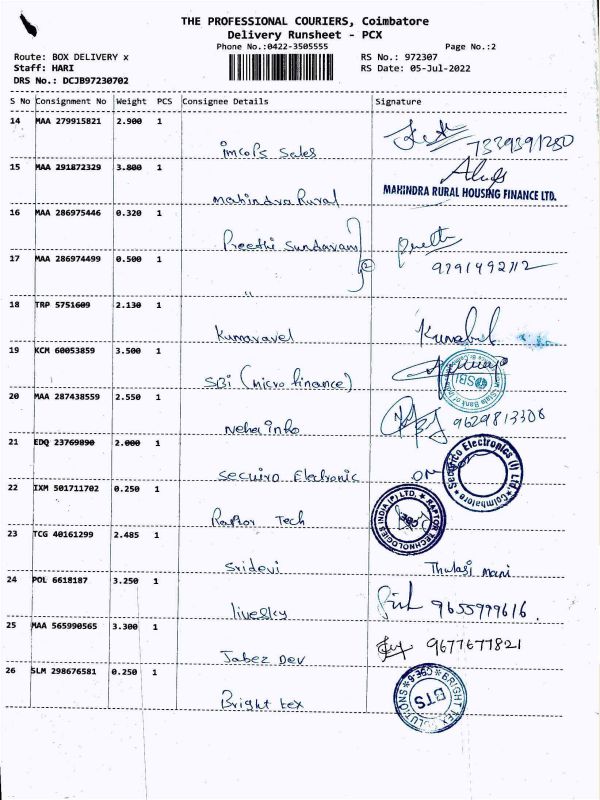 THE PROFESSIONAL COURIERS, Coimbatore
Delivery Runsheet - PCX
Phone No.:0422-3505555
Page No.:2
Route: BOX DELIVERY x
RS No.: 972307
Staff: HARI
RS Date: 05-Jul-2022
DRS No.: DCJB97230702
S No Consignment No Weight PCS Consignee Details Signature
14 MAA 279915821 2.900 1
imcops Sales 7339391280
15 MAA 291872329 3.800 1
Mahindra Rural MAHINDRA RURAL HOUSING FINANCE LTD.
16 MAA 286975446 0.320 1
Preethi Sundaram
17 MAA 286974499 0.500 1
2
9791492112
"
18 TRP 5751609 2.130 1
Kumaravel
19 KCM 60053859 3.500 1
SBI (micro finance) SBI State Bank of India
20 MAA 287438559 2.550 1
Neha info 9629813308
21 EDQ 23769890 2.000 1
Secuiro Electronic Securico Electronics (I) Ltd. Coimbatore
22 IXM 501711702 0.250 1
Raptor Tech RAPTOR TECHNOLOGIES INDIA (P) LTD. CBE
23 TCG 40161299 2.485 1
Sridevi Thulasi mani
24 POL 6618187 3.250 1
livesky 9655999616.
25 MAA 565990565 3.300 1
Jabez Dev 9677677821
26 SLM 298676581 0.250 1
Bright tex BRIGHT TEX SOLUTIONS CBE-6 BTS